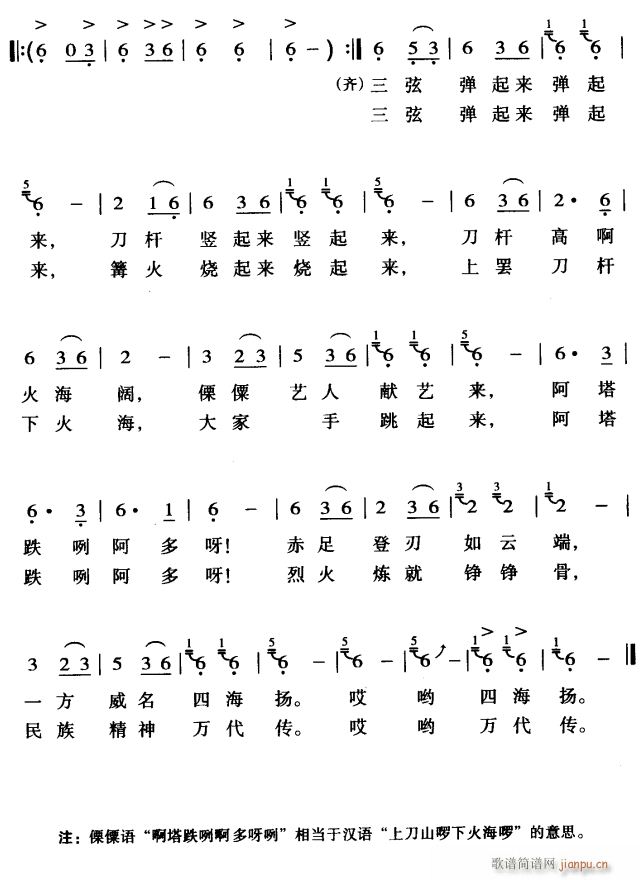 ‖:(6 0 3 | 6 3 6 | 6 6 | 6 -) :‖ 6 5 3 | 6 3 6 | 1 6 1 6
(齐)三弦 弹起来 弹起
三弦 弹起来 弹起
5 6 - | 2 1 6 | 6 3 6 | 1 6 1 6 | 5 6 - | 6 3 6 | 2· 6
来, 刀杆 竖起来竖起 来, 刀杆 高啊
来, 篝火 烧起来烧起 来, 上罢 刀杆
6 3 6 | 2 - | 3 2 3 | 5 3 6 | 1 6 1 6 | 5 6 - | 6· 3
火海 阔, 傈僳 艺人 献艺 来, 阿塔
下火 海, 大家 手 跳起 来, 阿塔
6· 3 | 6· 1 | 6 - | 6 3 6 | 2 3 6 | 3 2 3 2 | 1 2 -
跌咧阿多呀! 赤足 登刃 如云 端,
跌咧阿多呀! 烈火 炼就 铮铮 骨,
3 2 3 | 5 3 6 | 1 6 1 6 | 5 6 - | 5 6 - | 5 6 - | 1 6 1 6 | 1 6 - ‖
一方 威名 四海 扬。 哎 哟 四海 扬。
民族 精神 万代 传。 哎 哟 万代 传。
注: 傈僳语“啊塔跌咧啊多呀咧”相当于汉语“上刀山啰下火海啰”的意思。
歌谱简谱网
jianpu.cn